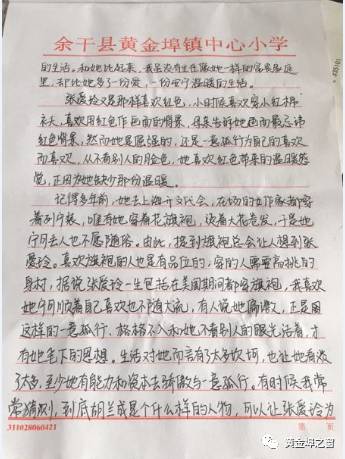 余干县黄金埠镇中心小学
的生活。和她比起来，我虽没有生在像她一样的富贵家庭
里，却比她多了一份爱，一份安宁温暖的生活。
张爱玲又是那样喜欢红色，小时候喜欢穿小红棉
衣，喜欢用红色作画面的背景，母亲告诉她画面最忌讳
红色背景，然而她是倔强的，还是一意孤行为自己的喜欢
而喜欢，从不看别人的脸色，她喜欢红色带来的温暖感
觉，正因为她缺少那份温暖。
记得多年前，她去上海开文代会，在场的女作家都穿
着列宁装，唯有她穿着花旗袍，烫着大花卷发，于是她
宁可去人也不愿随俗。由此，提到旗袍总会让人想到张
爱玲。喜欢旗袍的人也是有品位的，穿的人需要高挑的
身材，据说张爱玲一生包括在美国期间都穿旗袍，我喜欢
她宁可顺着自己喜欢也不随大流，有人说她偏激，正是因
这样的一意孤行，格格不入和她不看别人的眼光活着，才
有她笔下的思想。生活对她而言有了太多坎坷，也让她看淡
了太多，至少她有能力和资本去骄傲与一意孤行。有时候我常
常猜测，到底胡兰成是个什么样的人物，可以让张爱玲为
311028060421
第 页
黄金埠之窗